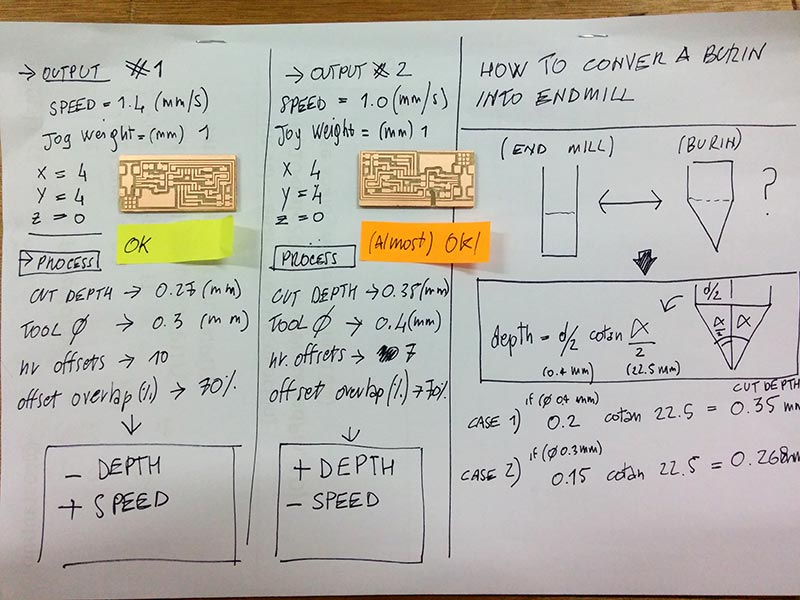 → OUTPUT #1
SPEED = 1.4 (mm/s)
Jog Weight = (mm) 1
X = 4
Y = 4
Z = 0
OK
→ PROCESS
CUT DEPTH → 0.27 (mm)
TOOL Ø → 0.3 (mm)
nr offsets → 10
offset overlap (%) → 70%
↓
- DEPTH
+ SPEED
→ OUTPUT #2
SPEED = 1.0 (mm/s)
Joy Weight = (mm) 1
X 4
Y = 4
Z = 0
(Almost) OK!
PROCESS
CUT DEPTH → 0.35 (mm)
TOOL Ø → 0.4 (mm)
nr. offsets → 7
offset overlap (%) → 70%
↓
+ DEPTH
- SPEED
HOW TO CONVER A BURIN
INTO ENDMILL
(END MILL) (BURIN)
?
d/2
depth = d/2 cotan α/2
(0.4 mm) (22.5 mm)
α/2 α
CUT DEPTH
if (Ø 0.4 mm)
CASE 1) 0.2 cotan 22.5 = 0.35 mm
if (Ø 0.3 mm)
CASE 2) 0.15 cotan 22.5 = 0.268mm